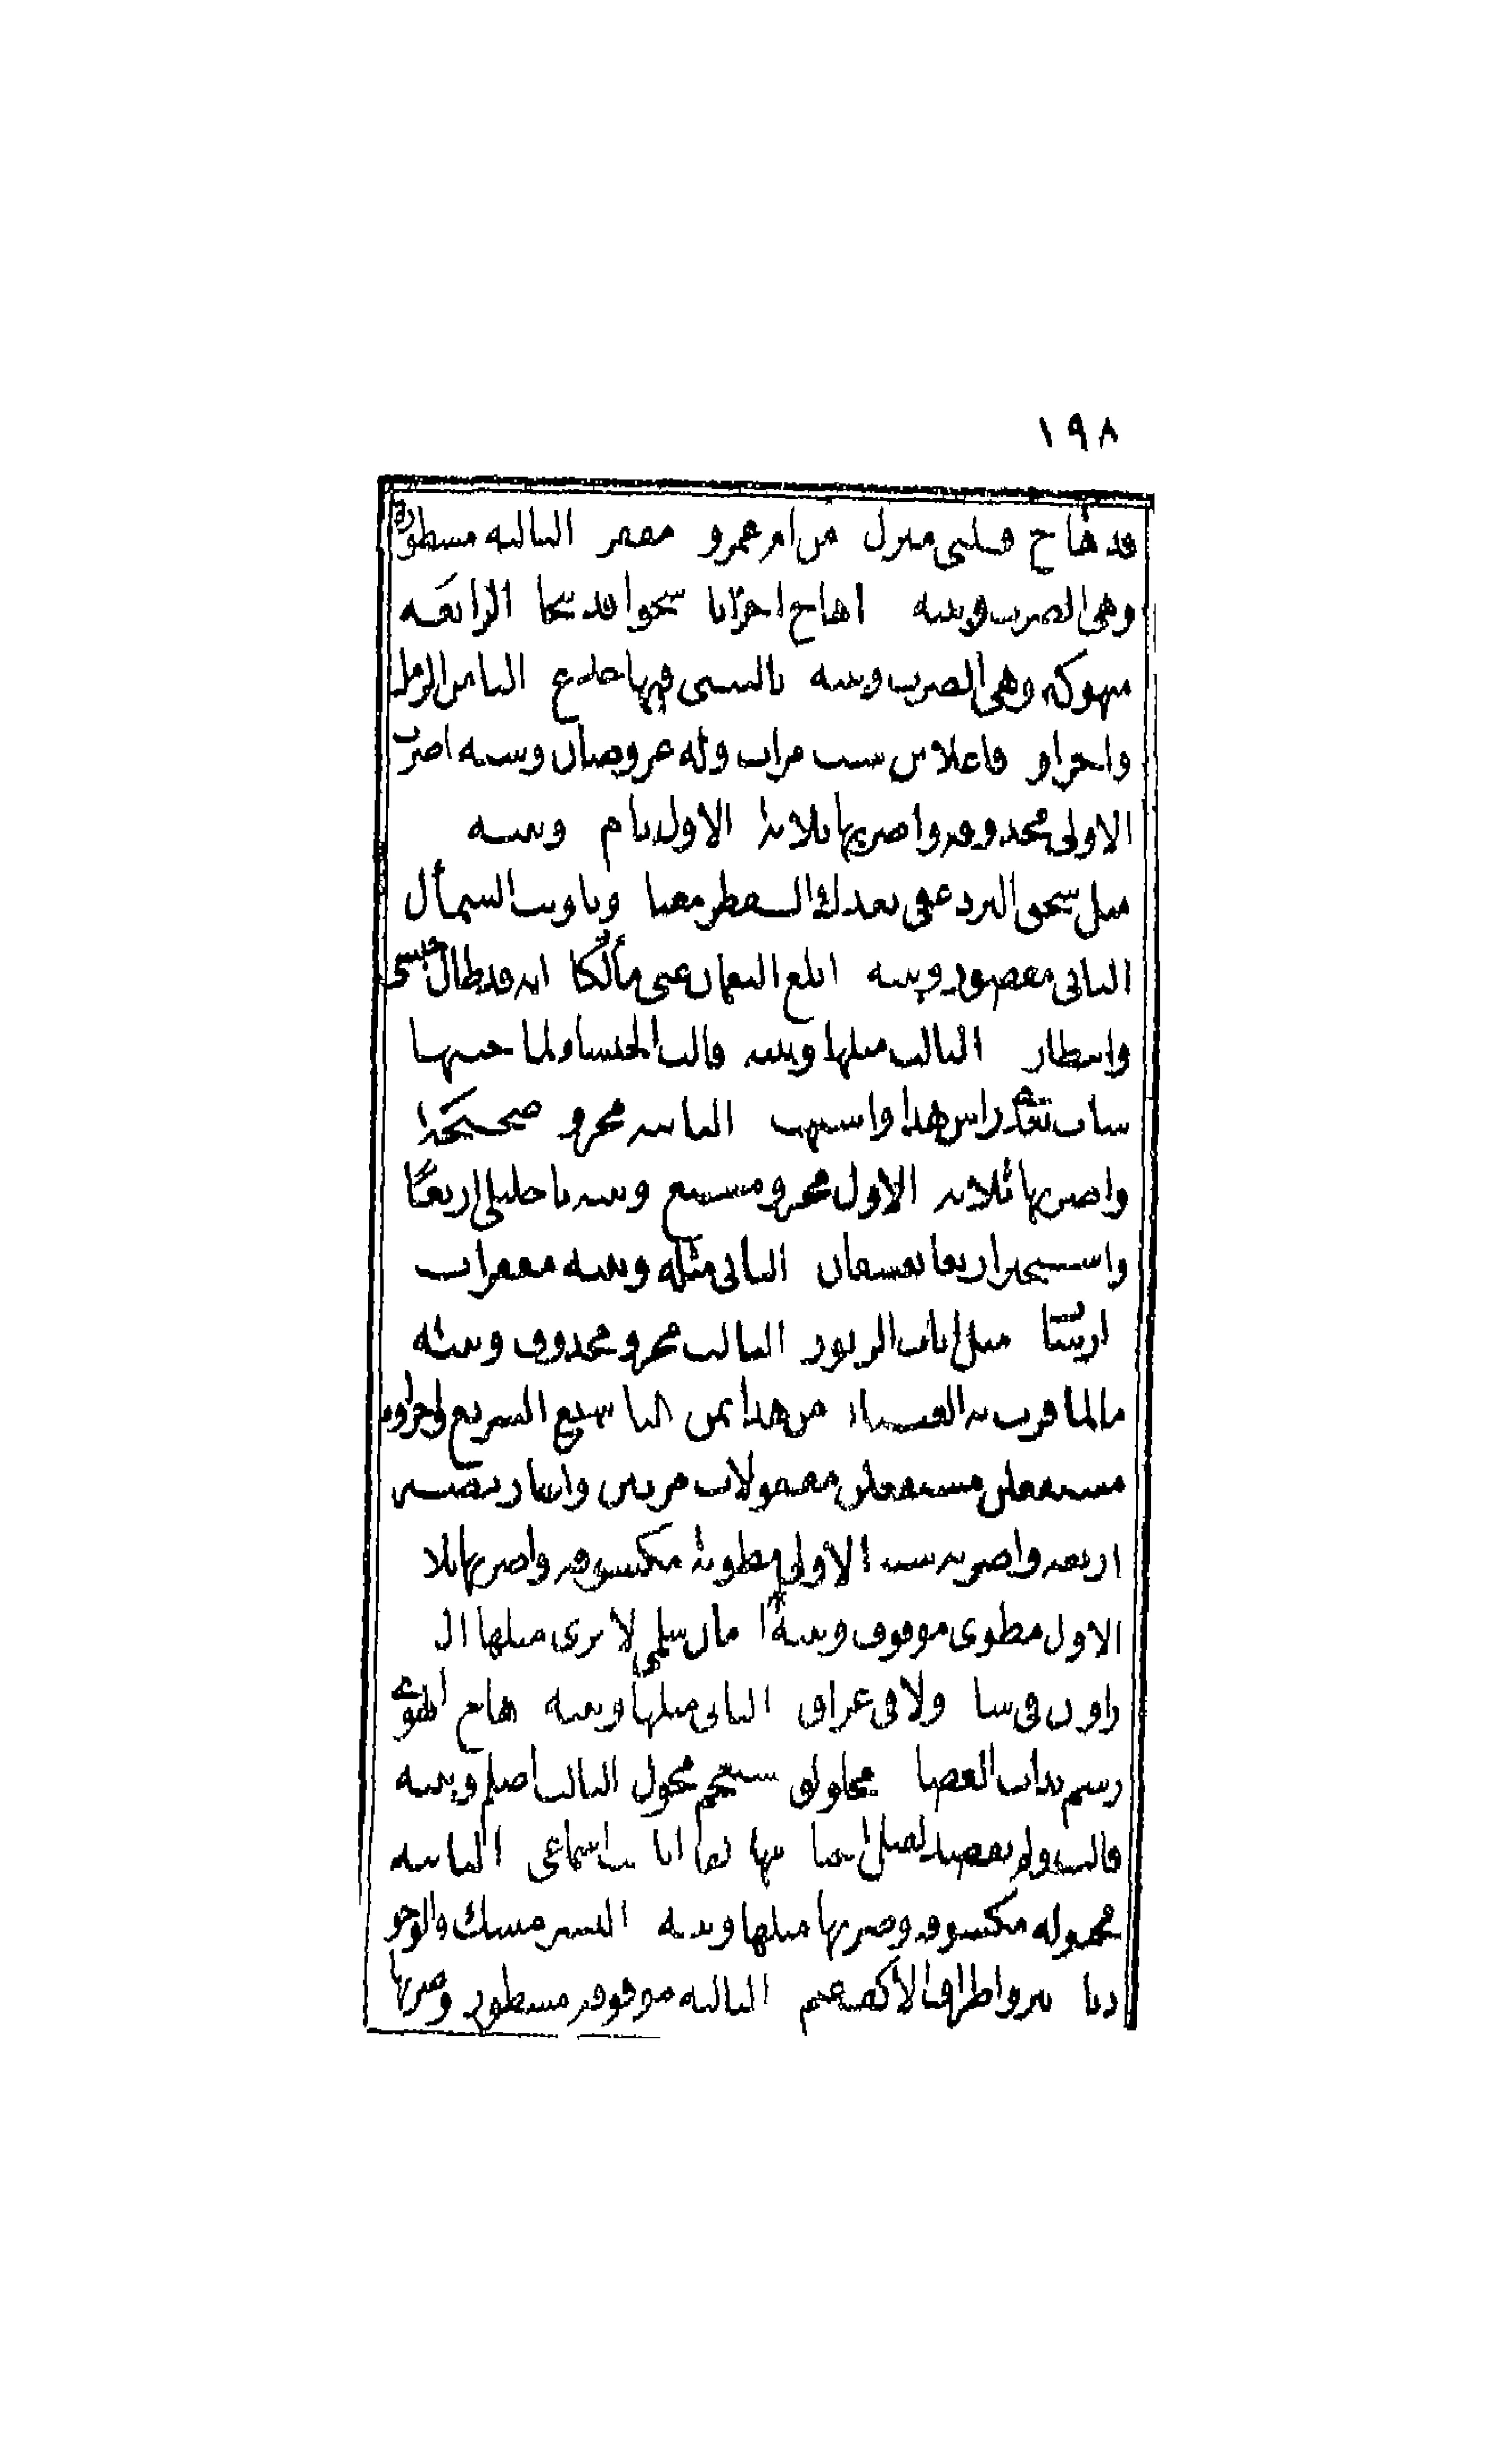 ١٩٨
قد هاج قلبي منزل من ام عمرو مقفر الثالثة مشطورة
وهي الضرب وبيته اهاج احزانا شجوا قد شجا الرابعة
منهوكة وهي الضرب وبيته ياليتني فيها جذع الثامن الرمل
واجزاوه فاعلاتن ست مرات وله عروضان وستة اضرب
الاولى محذوفة واضربها ثلاثة الاول تام وبيته
مثل سحق البرد عفى بعدك القطر مغنا وتاويب الشمأل
الثاني مقصور وبيته ابلغ النعمان عني مألكا انه قد طال حبسي
وانتظار الثالث مثلها وبيته قالت الخنساء لما جئتها
شاب بعدي راس هذا واشتهب الثانية مجزوة صحيحة
واضربها ثلاثة الاول مجزو مسبع وبيته يا خليلي اربعا
واستخبرا ربعا بعسفان الثاني مثله وبيته مقفرات
دارسات مثل ايات الزبور الثالث مجزو محذوف وبيته
مالما قرت به العينان من هذا ثمن التاسع السريع واجزاوه
مستفعلن مستفعلن مفعولات مرتين واعاريضه
اربعة واضربه ستة الاولى مطوية مكسوفة واضربها ثلاثة
الاول مطوي موقوف وبيته ازمان سلمى لا يرى مثلها الر
راوون في شام ولا في عراق الثاني مثلها وبيته هاج الهوى
رسم بذات الغضا مخلولق مستعجم محول الثالث اصلم وبيته
قالت ولم تقصد لقيل الخنا مهلا لقد ابلغت اسماعي الثانية
مخبولة مكسوفة وضربها مثلها وبيته النشر مسك والوجوه
دنا نير واطراف الاكف عنم الثالثة موقوفة مشطورة وضربها